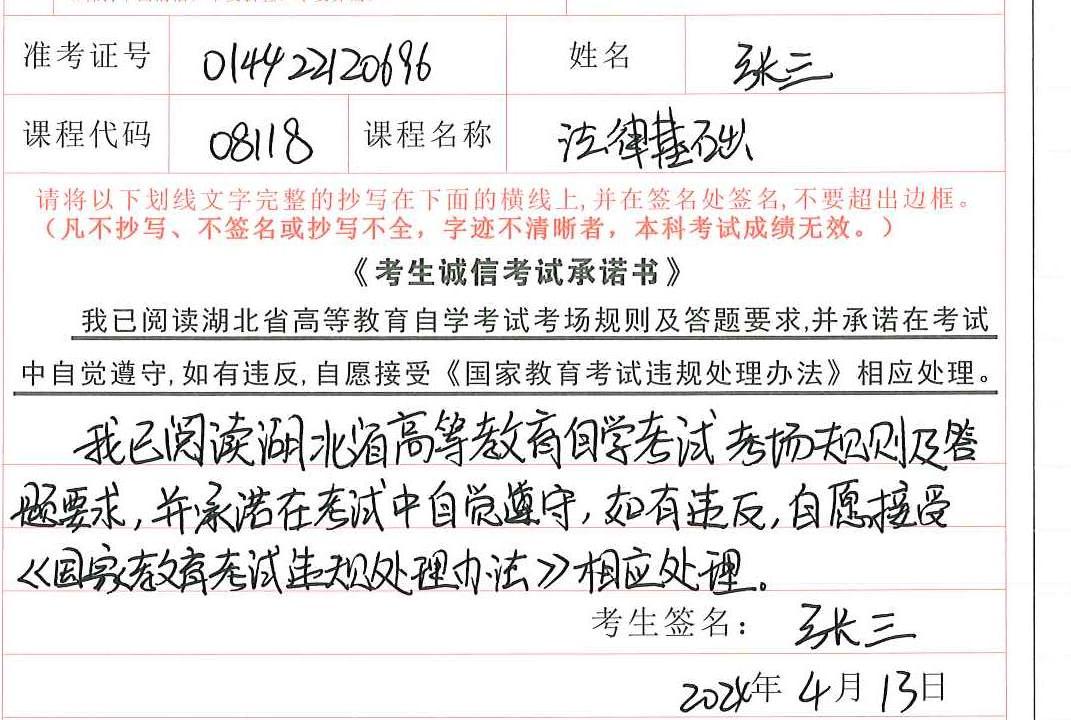 准考证号 014422120696 姓名 张三
课程代码 08118 课程名称 法律基础
请将以下划线文字完整的抄写在下面的横线上,并在签名处签名,不要超出边框。
（凡不抄写、不签名或抄写不全，字迹不清晰者，本科考试成绩无效。）
《考生诚信考试承诺书》
我已阅读湖北省高等教育自学考试考场规则及答题要求,并承诺在考试
中自觉遵守,如有违反,自愿接受《国家教育考试违规处理办法》相应处理。
我已阅读湖北省高等教育自学考试考场规则及答
题要求,并承诺在考试中自觉遵守,如有违反,自愿接受
《国家教育考试违规处理办法》相应处理。
考生签名： 张三
2024年 4月 13日